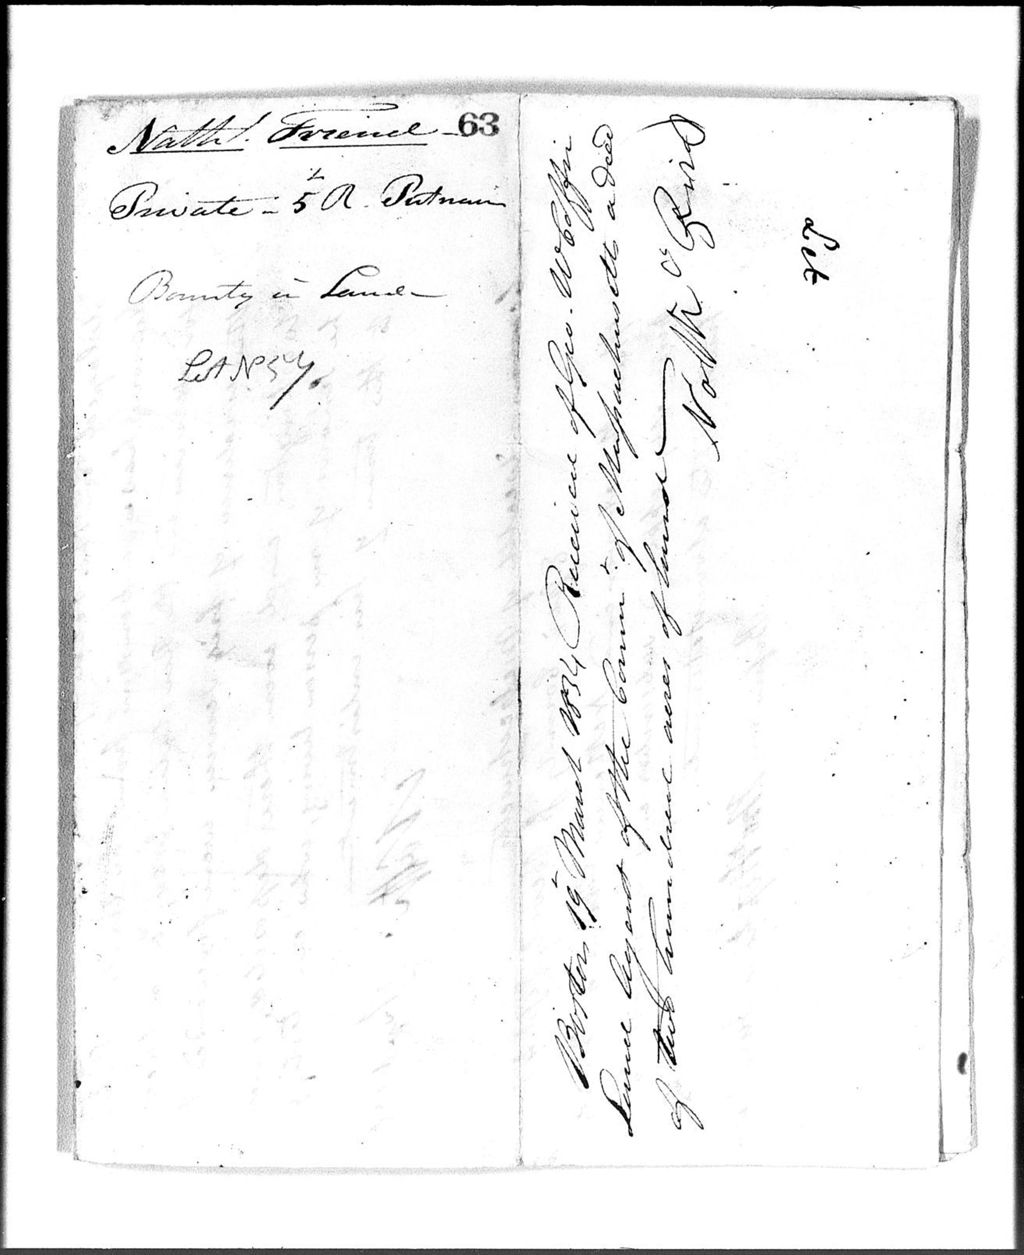 Nathl. Friend 63
Private - 5 R. Putnam
Bounty in Land
Lot No 54.
Boston, 19 March 1834 Received of Geo. W. Coffin
Land Agent of the Commt. of Massachusetts a deed
of two hundred acres of land
Lot